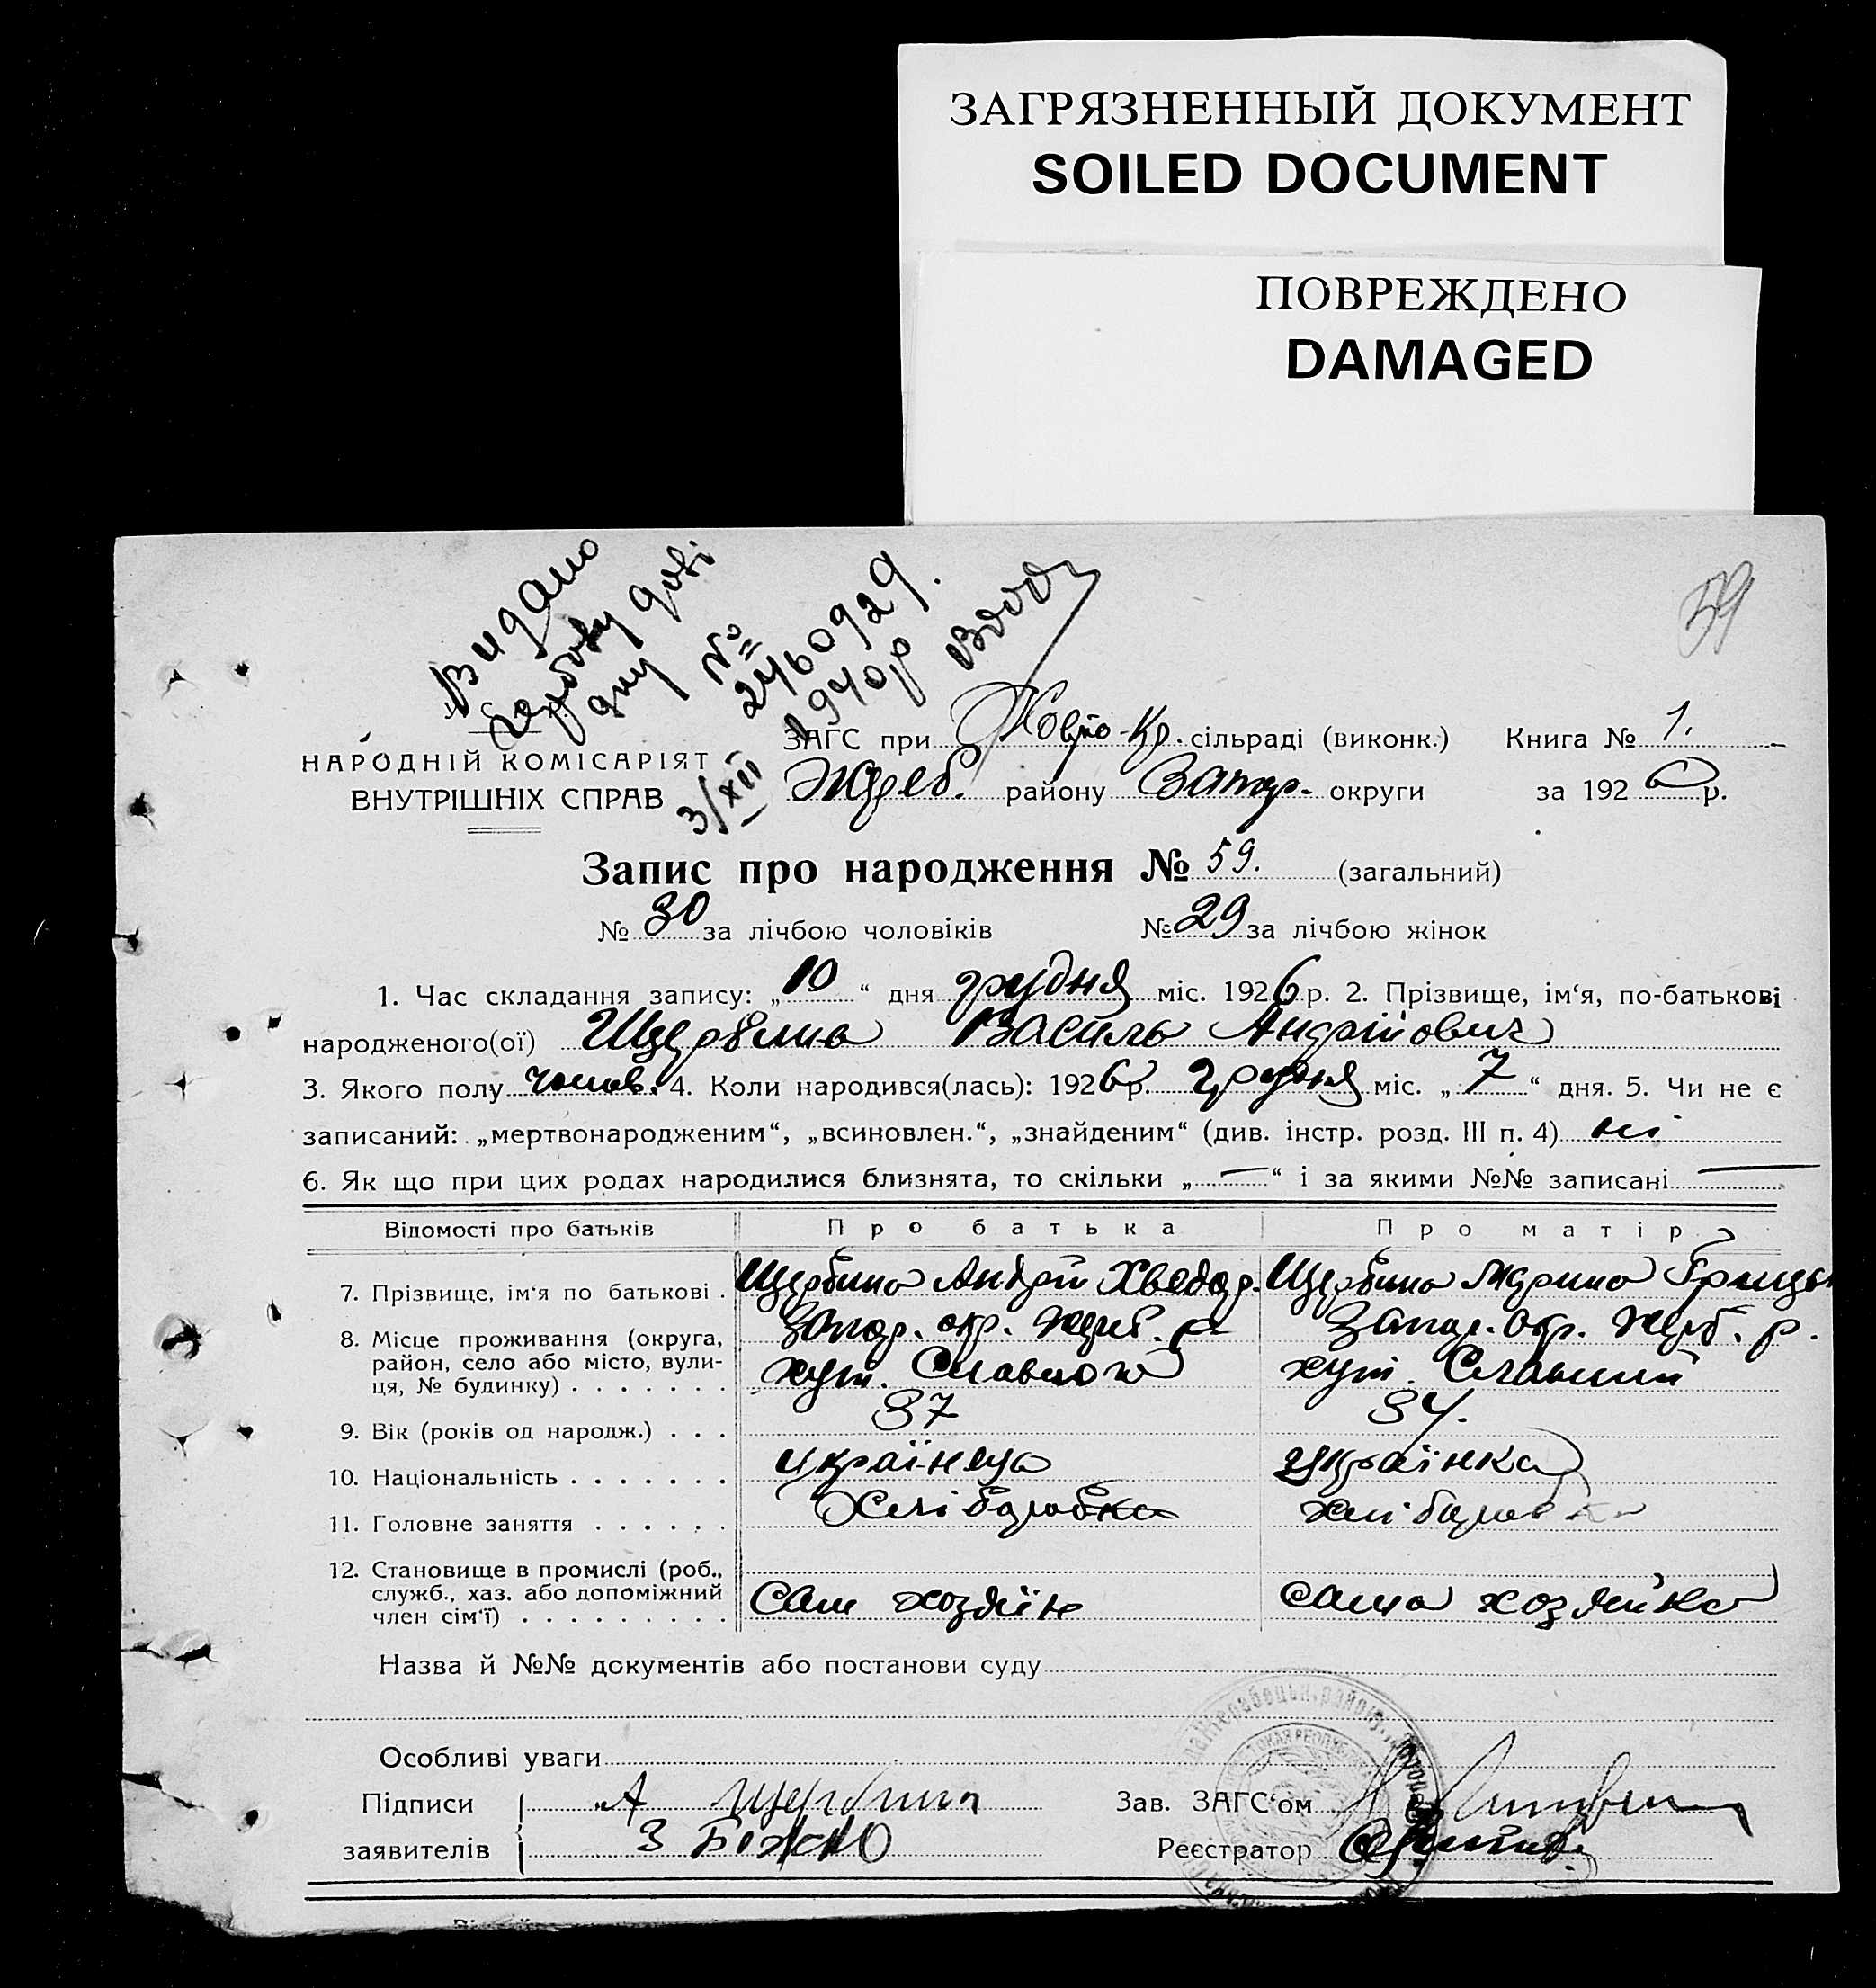 ЗАГРЯЗНЕННЫЙ ДОКУМЕНТ
SOILED DOCUMENT
ПОВРЕЖДЕНО
DAMAGED
59
Видано
гербову
№
2460929.
3/XII 1940р
НАРОДНІЙ КОМІСАРІЯТ
ВНУТРІШНІХ СПРАВ
ЗАГС при Жовто-Кр. сільраді (виконк.) Книга № 1.
Жереб. району Запор. округи за 1926 р.
Запис про народження № 59. (загальний)
№ 30 за лічбою чоловіків № 29 за лічбою жінок
1. Час складання запису: „10“ дня грудня міс. 1926 р. 2. Прізвище, ім‘я, по-батькові
народженого(ої) Щербина Василь Андрійович
3. Якого полу чолов. 4. Коли народився(лась): 1926 р. грудня міс. „7“ дня. 5. Чи не є
записаний: „мертвонародженим“, „всиновлен.“, „знайденим“ (див. інстр. розд. III п. 4) ні
6. Як що при цих родах народилися близнята, то скільки „—“ і за якими №№ записані —
Відомості про батьків Про батька Про матір
7. Прізвище, ім‘я по батькові . Щербина Андрій Хведор. Щербина Марина Грицьк
8. Місце проживання (округа, Запор. окр. Жереб. р. Запор. Окр. Жереб. р.
район, село або місто, вули- хут. хут.
ця, № будинку) . . . . . . .
9. Вік (років од народж.) . . . 37 34.
10. Національність . . . . . . . українець українка
11. Головне заняття . . . . . . Хліборобка хліборобка
12. Становище в промислі (роб.,
служб., хаз. або допоміжний Сам хозяїн сама хозяйка
член сім‘ї) . . . . . . . . .
Назва й №№ документів або постанови суду
Особливі уваги
Підписи А Щербина Зав. ЗАГС‘ом
заявителів З Божко Реєстратор